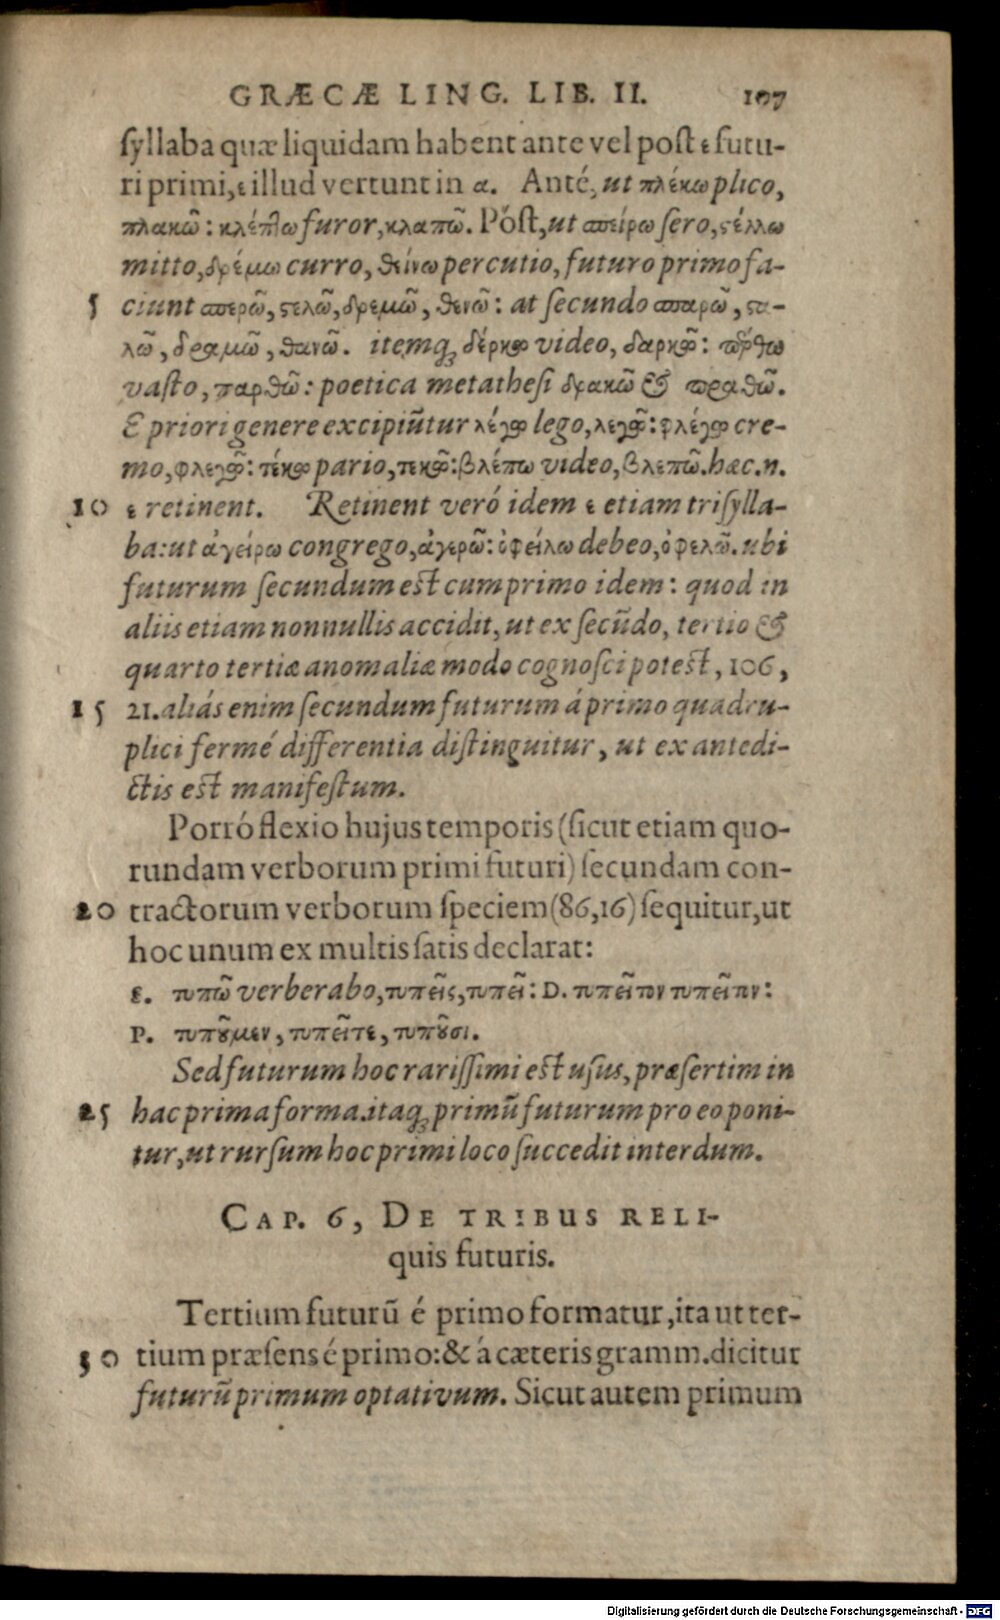 GRÆCÆ LING. LIB. II. 107
syllaba quæ liquidam habent ante vel post ε futu-
ri primi, ε illud vertunt in α. Anté, ut πλέκω plico,
πλακῶ: κλέπτω furor, κλαπῶ. Póst, ut σπείρω sero, στέλλω
mitto, δρέμω curro, θείνω percutio, futuro primo fa-
5 ciunt σπερῶ, στελῶ, δρεμῶ, θενῶ: at secundo σπαρῶ, στα-
λῶ, δραμῶ, θανῶ. itemq; δέρκω video, δαρκῶ: πέρθω
vasto, παρθῶ: poetica metathesi δρακῶ & πραθῶ.
E priori genere excipiũtur λέγω lego, λεγῶ: φλέγω cre-
mo, φλεγῶ: τέκω pario, τεκῶ: βλέπω video, βλεπῶ. hæc.n.
10 ε retinent. Retinent veró idem ε etiam trisylla-
ba: ut ἀγείρω congrego, ἀγερῶ: ὀφείλω debeo, ὀφελῶ. ubi
futurum secundum est cum primo idem: quod in
aliis etiam nonnullis accidit, ut ex secũdo, tertio &
quarto tertiæ anomaliæ modo cognosci potest, 106,
15 21. aliás enim secundum futurum á primo quadru-
plici fermé differentia distinguitur, ut ex antedi-
ctis est manifestum.
Porró flexio hujus temporis (sicut etiam quo-
rundam verborum primi futuri) secundam con-
20 tractorum verborum speciem (86,16) sequitur, ut
hoc unum ex multis satis declarat:
ε. τυπῶ verberabo, τυπεῖς, τυπεῖ: D. τυπεῖτον τυπεῖτον:
P. τυποῦμεν, τυπεῖτε, τυποῦσι.
Sed futurum hoc rarissimi est usus, præsertim in
25 hac prima forma. itaq; primũ futurum pro eo poni-
tur, ut rursum hoc primi loco succedit interdum.
CAP. 6, DE TRIBUS RELI-
quis futuris.
Tertium futurũ é primo formatur, ita ut ter-
30 tium præsens é primo: & á cæteris gramm. dicitur
futurũ primum optativum. Sicut autem primum
Digitalisierung gefördert durch die Deutsche Forschungsgemeinschaft - DFG